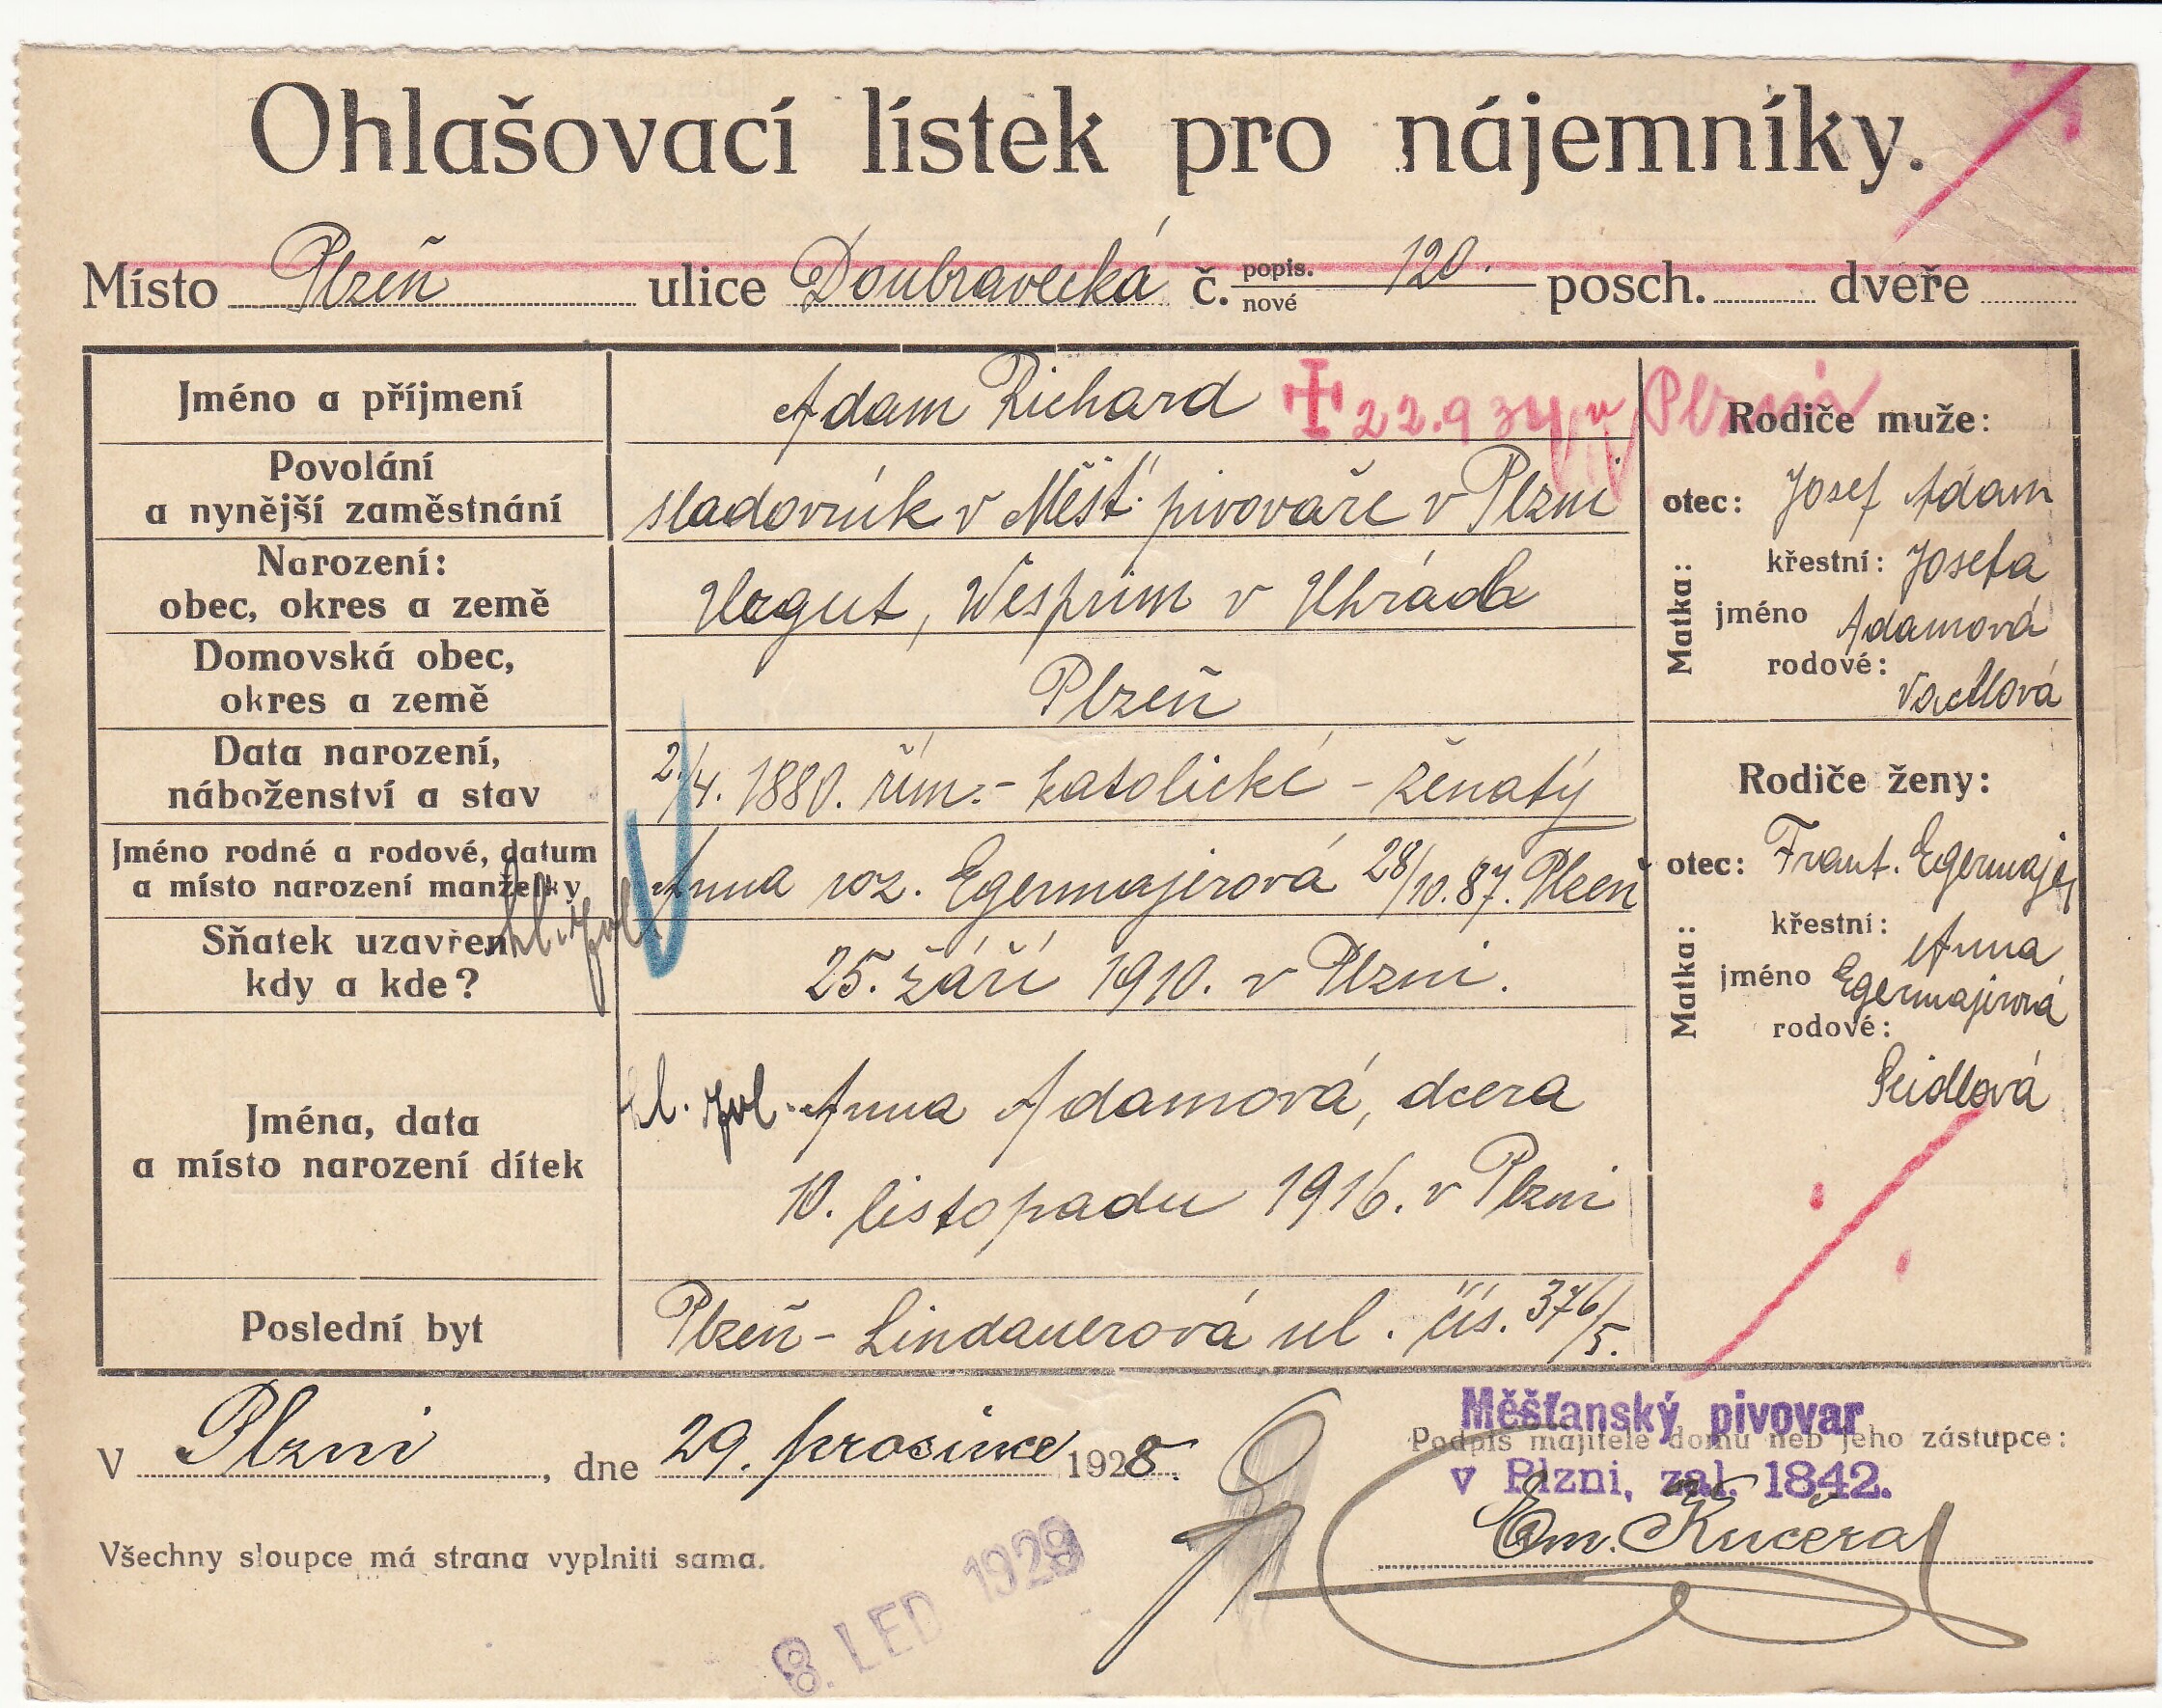 Ohlašovací lístek pro nájemníky.
Místo Plzeň ulice Doubravecká č. popis. nové 120. posch. dveře
Jméno a příjmení
Adam Richard ✠ 22.9 34 v Plzni
Povolání
a nynější zaměstnání
sladovník v Měšť. pivovaře v Plzni
Narození:
obec, okres a země
Wesprim v
Domovská obec,
okres a země
Plzeň
Data narození,
náboženství a stav
2/4. 1880. řím.- katolické - ženatý
Jméno rodné a rodové, datum
a místo narození manželky
Anna roz. Egermajerová 28/10. 87. Plzeň
Sňatek uzavřen
kdy a kde?
25. září 1910. v Plzni.
Jména, data
a místo narození dítek
Anna Adamová, dcera
10. listopadu 1916. v Plzni
Poslední byt
Plzeň - Lindauerová ul. čís. 376/5.
Rodiče muže:
otec: Josef Adam
Matka:
křestní: Josefa
jméno Adamová
rodové:
Rodiče ženy:
otec: Frant. Egermajer
Matka:
křestní: Anna
jméno Egermajerová
rodové:
Seidlová
V Plzni, dne 29. prosince 1928.
Měšťanský pivovar
Podpis majitele domu neb jeho zástupce:
v Plzni, zal. 1842.
Em. Kučera
Všechny sloupce má strana vyplniti sama.
8. LED 1929